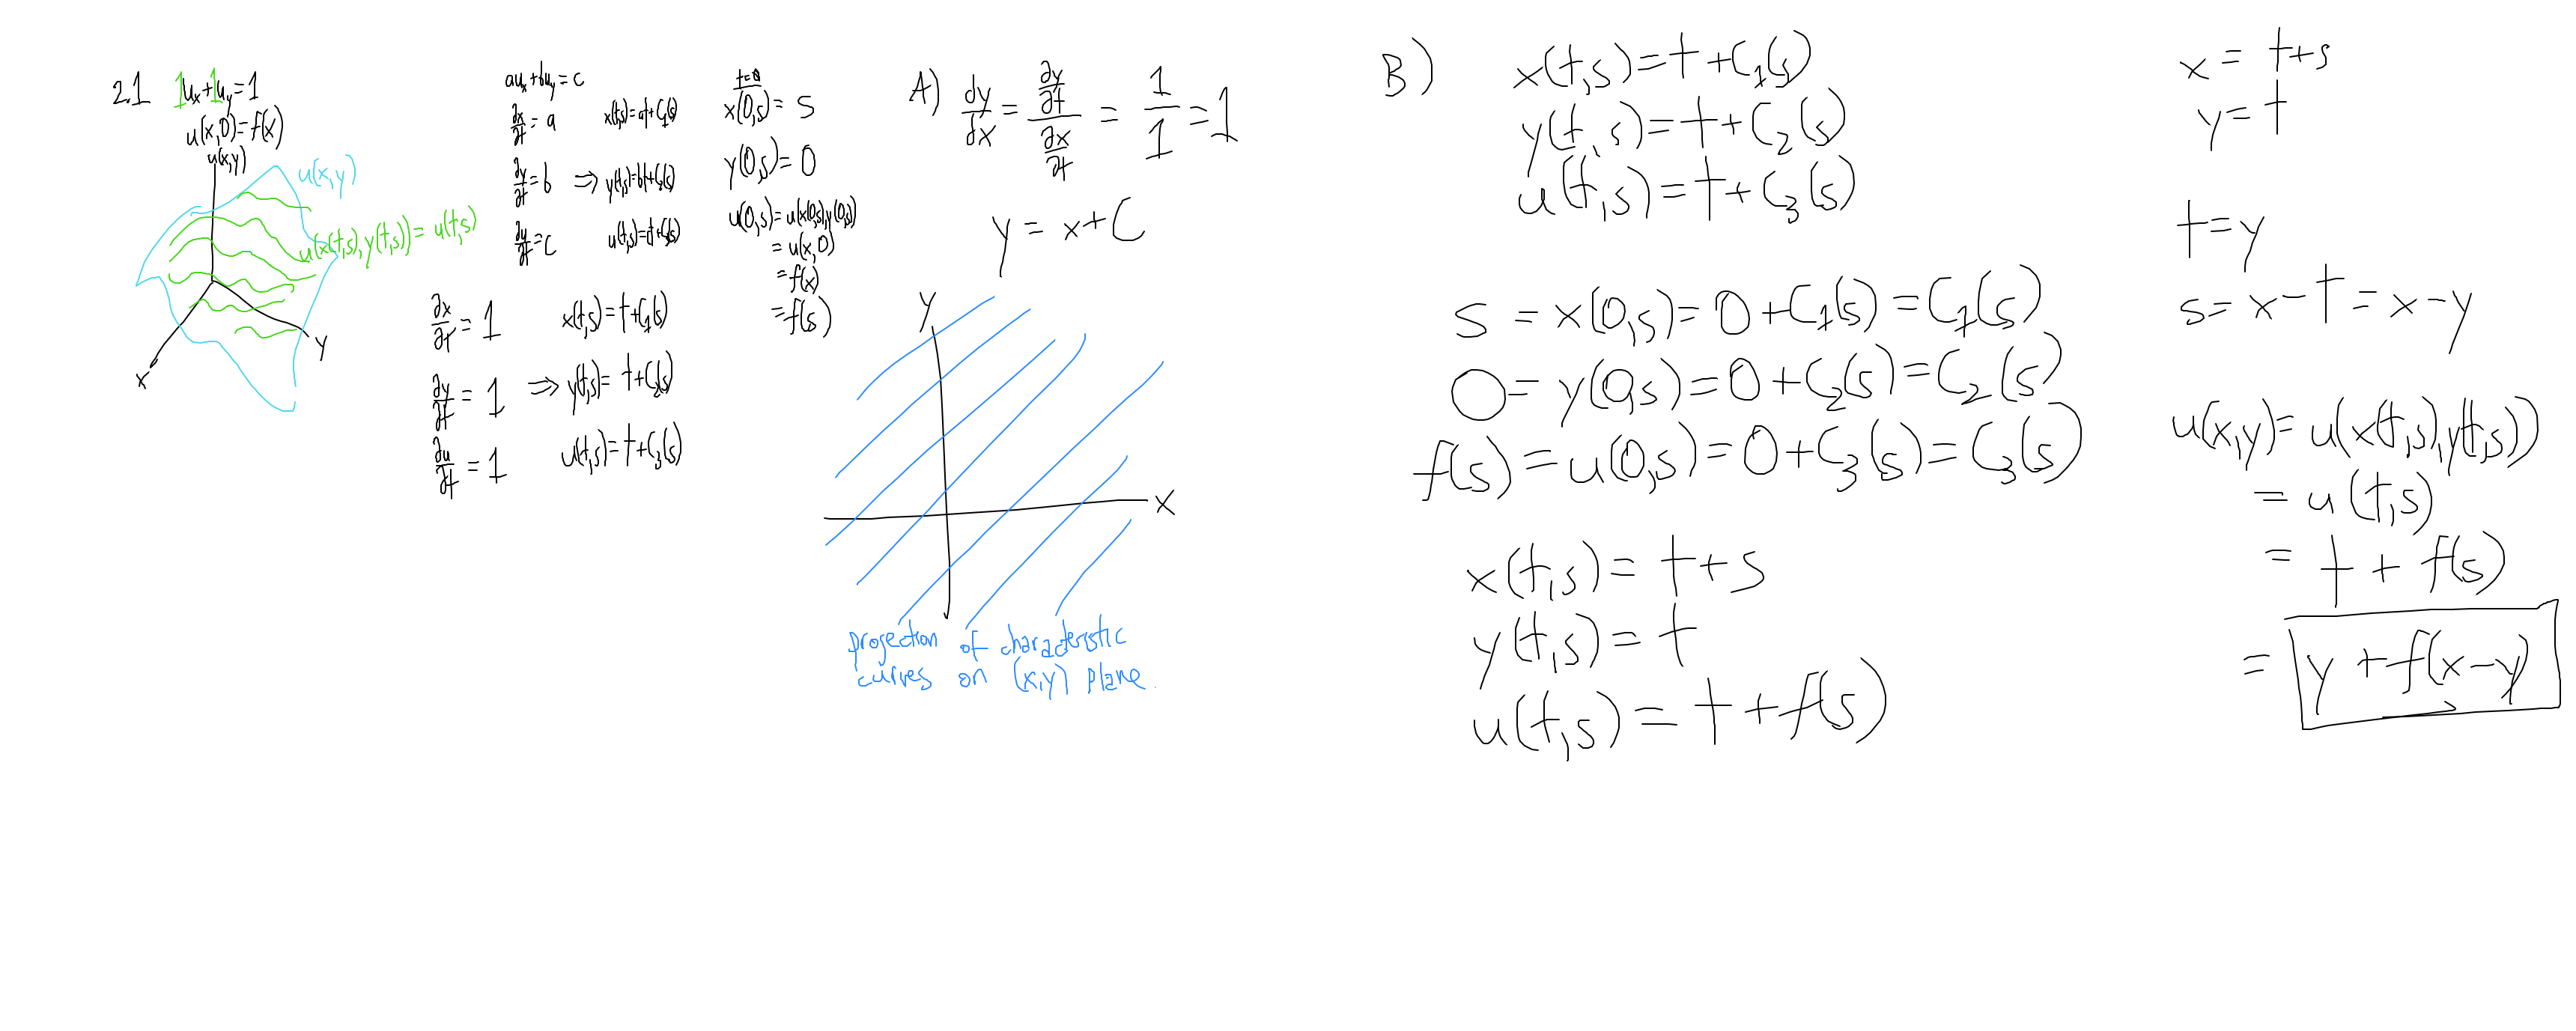 2.1 1u_x+1u_y=1
u(x,0)=f(x)
u(x,y)
u(x,y)
u(x(t,s),y(t,s))=u(t,s)
x
y
au_x+bu_y=c
∂x/∂t=a x(t,s)=at+C_1(s)
∂y/∂t=b ⇒ y(t,s)=bt+C_2(s)
∂u/∂t=c u(t,s)=ct+C_3(s)
∂x/∂t=1 x(t,s)=t+C_1(s)
∂y/∂t=1 ⇒ y(t,s)=t+C_2(s)
∂u/∂t=1 u(t,s)=t+C_3(s)
t=0
x(0,s)=s
y(0,s)=0
u(0,s)=u(x(0,s),y(0,s))
=u(x,0)
=f(x)
=f(s)
A) dy/dx=(∂y/∂t)/(∂x/∂t)=1/1=1
y=x+C
y
x
projection of characteristic
curves on (x,y) plane.
B) x(t,s)=t+C_1(s)
y(t,s)=t+C_2(s)
u(t,s)=t+C_3(s)
s=x(0,s)=0+C_1(s)=C_1(s)
0=y(0,s)=0+C_2(s)=C_2(s)
f(s)=u(0,s)=0+C_3(s)=C_3(s)
x(t,s)=t+s
y(t,s)=t
u(t,s)=t+f(s)
x=t+s
y=t
t=y
s=x-t=x-y
u(x,y)=u(x(t,s),y(t,s))
=u(t,s)
=t+f(s)
=y+f(x-y)